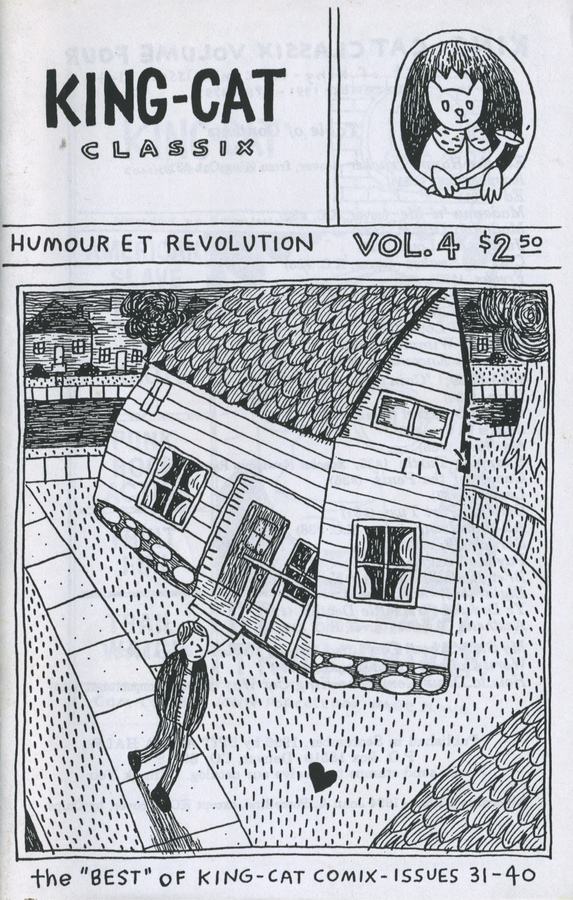 KING-CAT
CLASSIX
HUMOUR ET REVOLUTION
VOL. 4 $2.50
the "BEST" OF KING-CAT COMIX - ISSUES 31-40